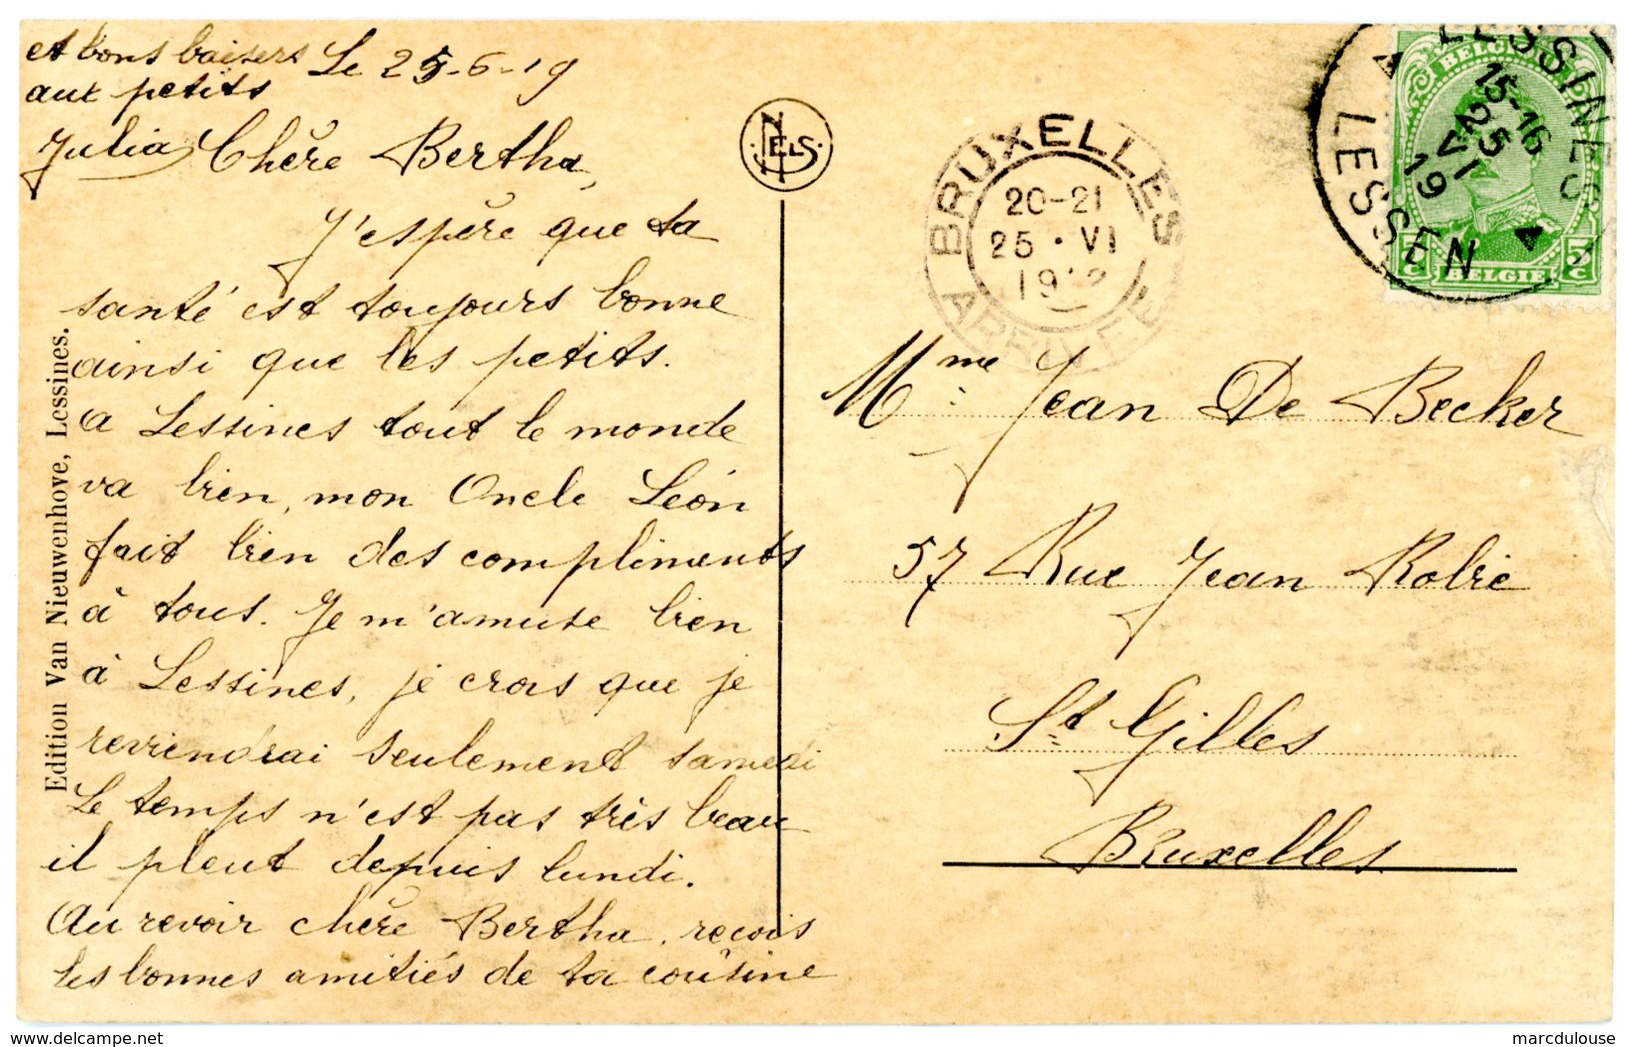 et bons baisers
aux petits
Julia
Le 25-6-19
Chère Bertha,
J'espère que ta
santé est toujours bonne
ainsi que les petits.
a Lessines tout le monde
va bien, mon Oncle Léon
fait bien des compliments
à tous. Je m'amuse bien
à Lessines, je crois que je
reviendrai seulement samedi
Le temps n'est pas très beau
il pleut depuis lundi.
Au revoir chère Bertha, reçois
les bonnes amitiés de ta cousine
Edition Van Nieuwenhove, Lessines.
NELS
BRUXELLES
20-21
25 · VI
LESSINES
15-16
25
VI
19
LESSEN
BELGIQUE
5c
5c
BELGIË
Mme Jean De Becker
57 Rue Jean Robie
St Gilles
Bruxelles
delcampe.net
marcdulouse